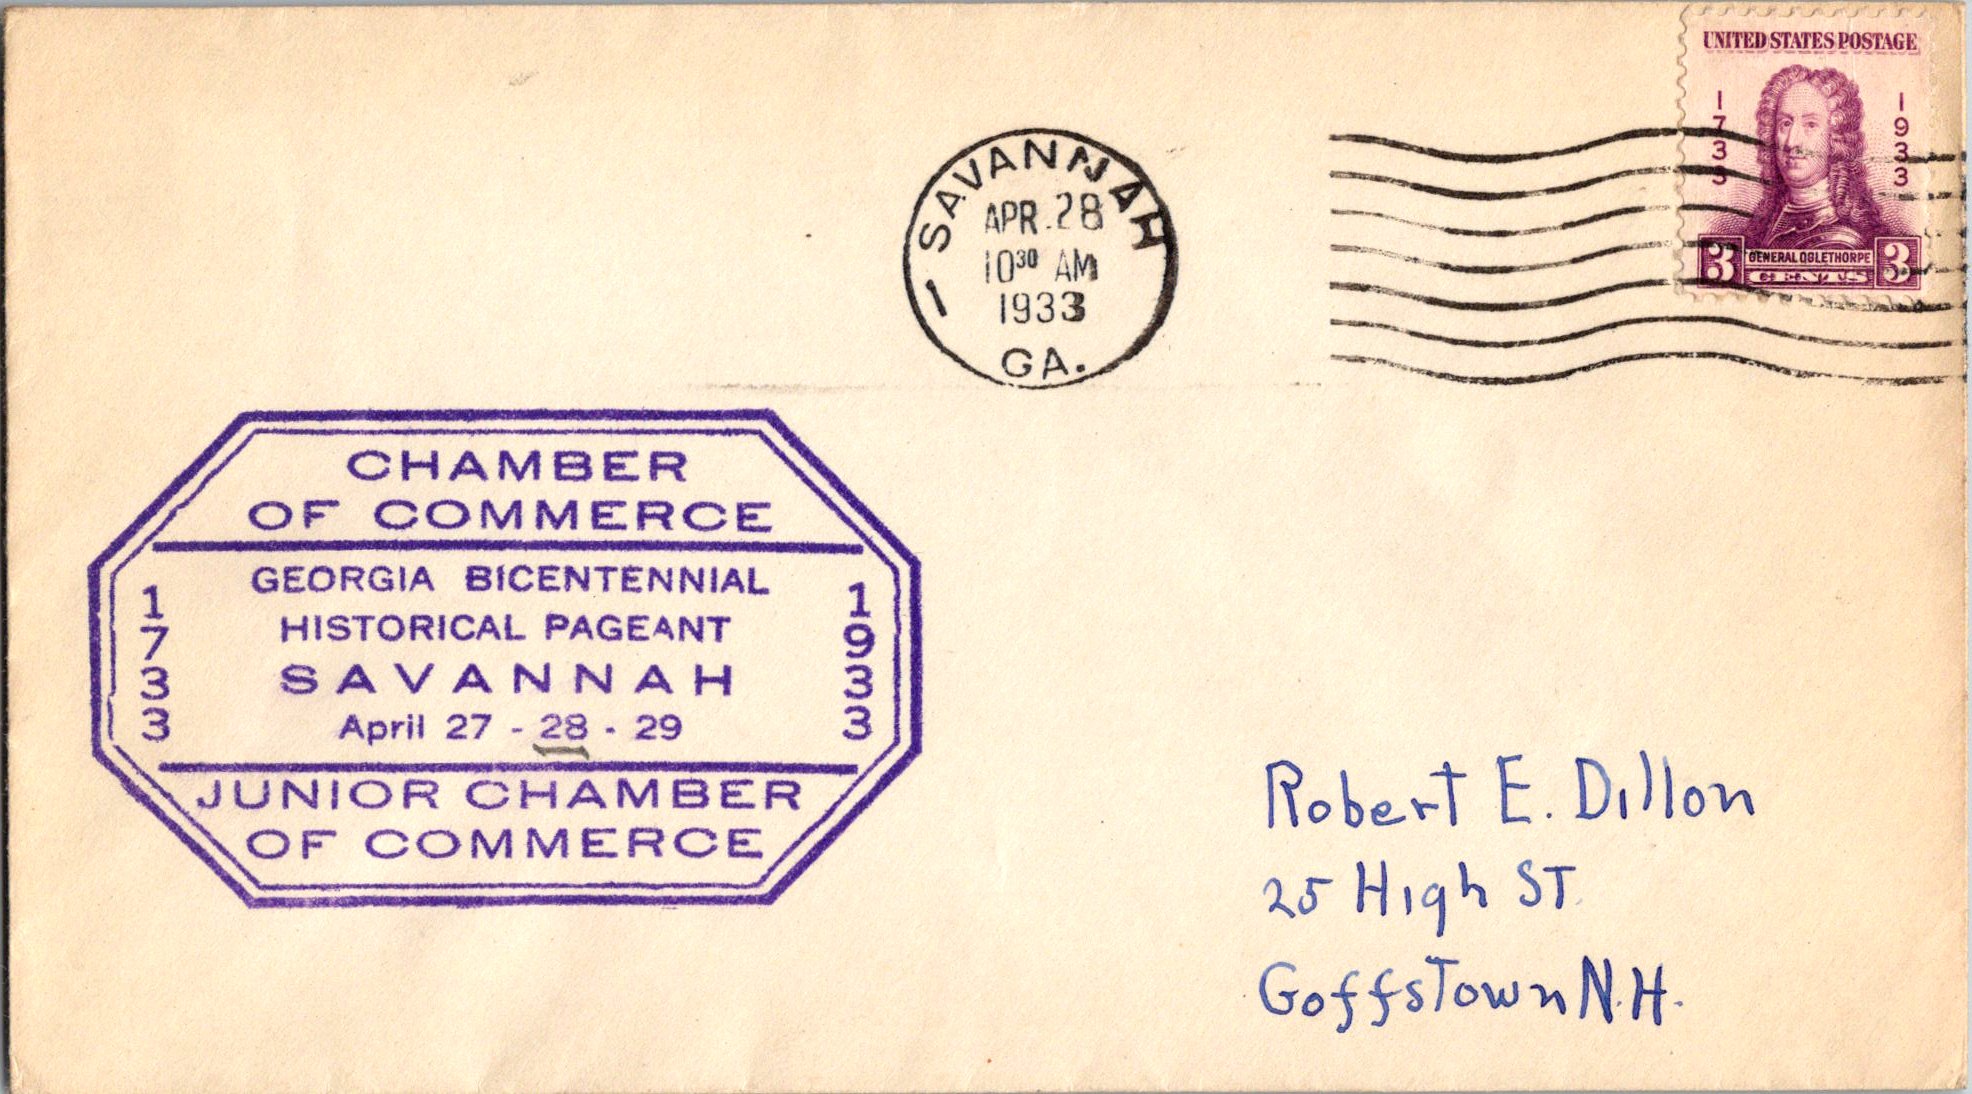 UNITED STATES POSTAGE
1733
1933
GENERAL OGLETHORPE
3 CENTS 3
SAVANNAH
APR 28
10 30 AM
1933
GA.
CHAMBER
OF COMMERCE
GEORGIA BICENTENNIAL
HISTORICAL PAGEANT
SAVANNAH
April 27 - 28 - 29
1733
1933
JUNIOR CHAMBER
OF COMMERCE
Robert E. Dillon
25 High ST.
Goffstown N.H.